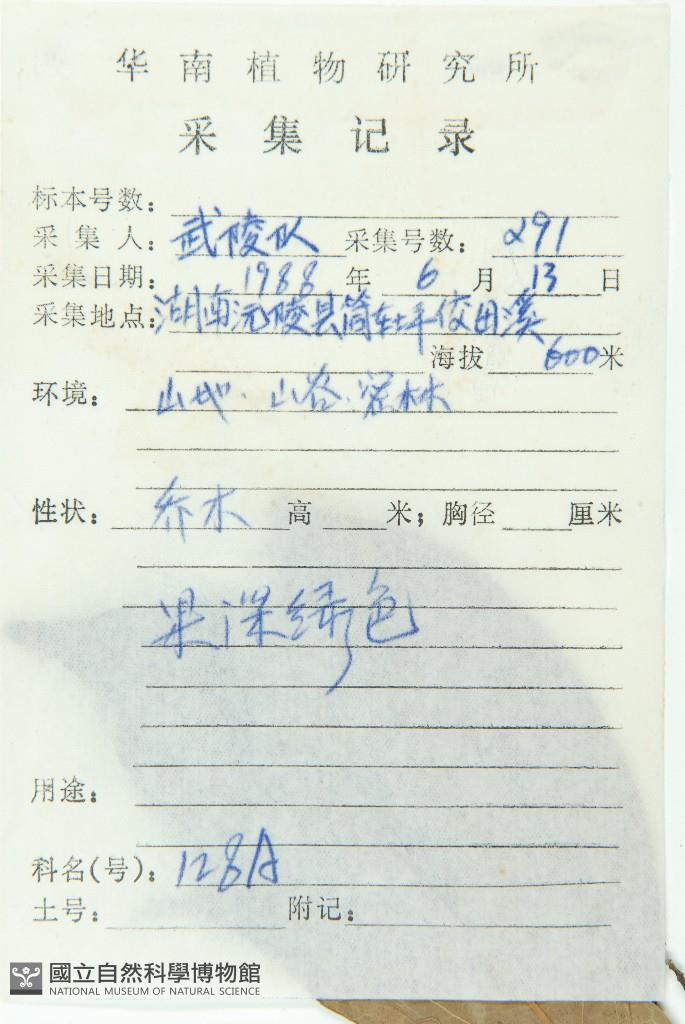 华南植物研究所
采集记录
标本号数:
采集人: 武陵队 采集号数: 291
采集日期: 1988 年 6 月 13 日
采集地点: 湖南沅陵县筒车坪 田溪
海拔 600 米
环境: 山地·山谷·密林
性状: 乔木 高 米; 胸径 厘米
果深绿色
用途:
科名(号): 128A
土号: 附记:
國立自然科學博物館
NATIONAL MUSEUM OF NATURAL SCIENCE